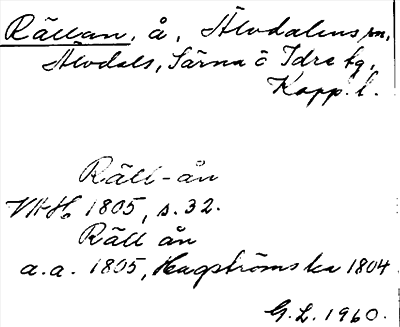 Rällan, å, Älvdalens sn,
Älvdals, Särna o Idre tg,
Kopp. l.
Räll-ån
VHH 1805, s. 32.
Räll ån
a.a. 1805, Hagströms ka 1804
G.L. 1960.